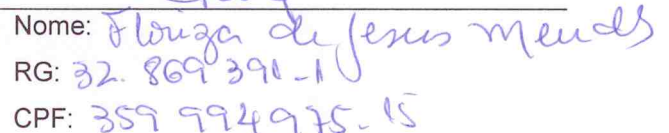 Nome: Floriza de Jesus Mendes
RG: 32.869391-1
CPF: 359 994975-15